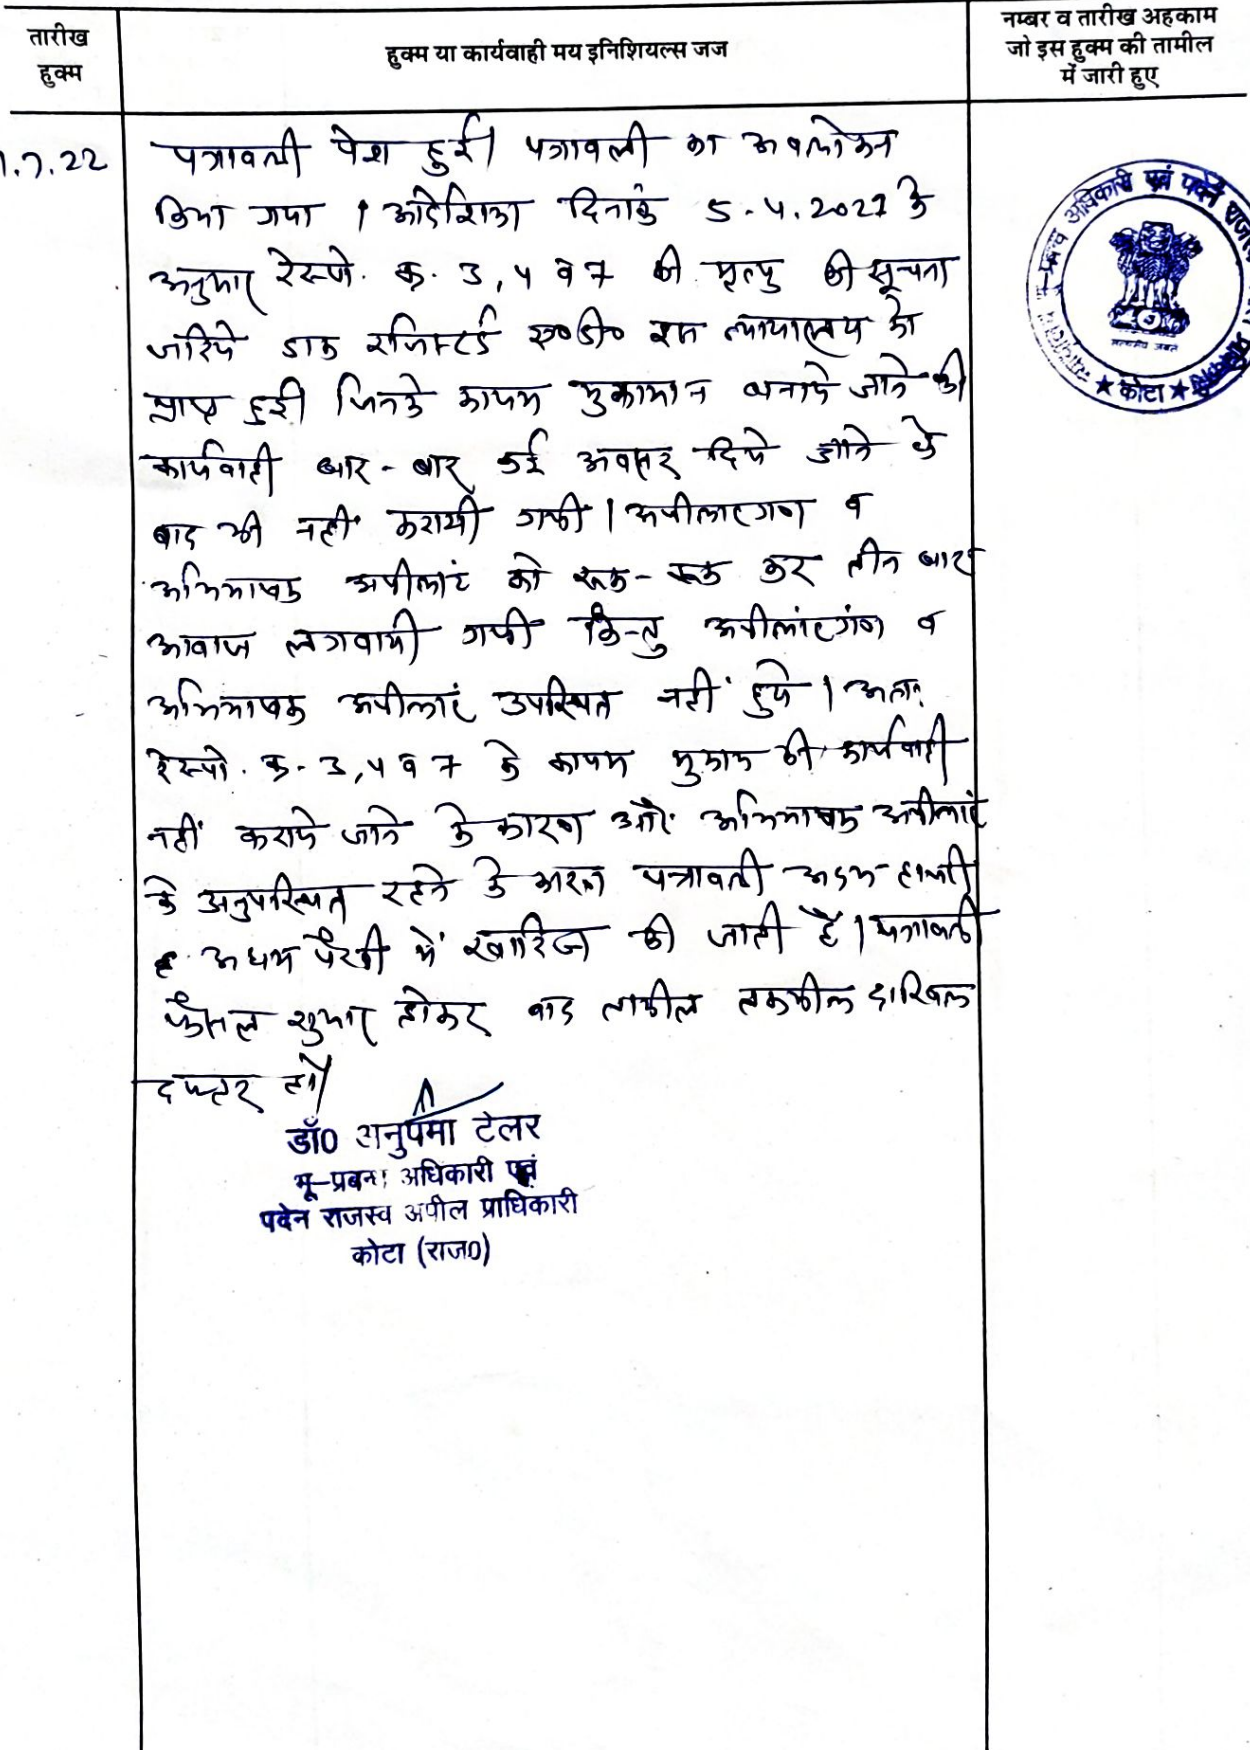 तारीख
हुक्म
हुक्म या कार्यवाही मय इनिशियल्स जज
नम्बर व तारीख अहकाम
जो इस हुक्म की तामील
में जारी हुए
1.7.22
पत्रावली पेश हुई। पत्रावली का अवलोकन
किया गया । आदेशिका दिनांक 5.4.2022 के
अनुसार रेस्पो. क्र. 3,4 व 7 की मृत्यु की सूचना
जरिये डाक रजिस्टर्ड ए०डी० इस न्यायालय को
प्राप्त हुई जिनके कायम मुकामान बनाये जाने की
कार्यवाही बार-बार कई अवसर दिये जाने के
बाद भी नहीं करायी गयी । अपीलांटगण व
अभिभाषक अपीलांट को रूक-रूक कर तीन बार
आवाज लगवायी गयी किन्तु अपीलांटगण व
अभिभाषक अपीलांट उपस्थित नहीं हुये । अतः
रेस्पो. क्र. 3,4 व 7 के कायम मुकाम की कार्यवाही
नहीं कराये जाने के कारण और अभिभाषक अपीलांट
के अनुपस्थित रहने के कारण पत्रावली अदम हाजरी
व अदम पैरवी में खारिज की जाती है । पत्रावली
फैसल शुमार होकर बाद तामील तकमील दाखिल
दफ्तर हो।
डॉ0 अनुपमा टेलर
भू-प्रबन्ध अधिकारी एवं
पदेन राजस्व अपील प्राधिकारी
कोटा (राज0)
भू-प्रबन्ध अधिकारी एवं पदेन राजस्व
सत्यमेव जयते
★ कोटा ★